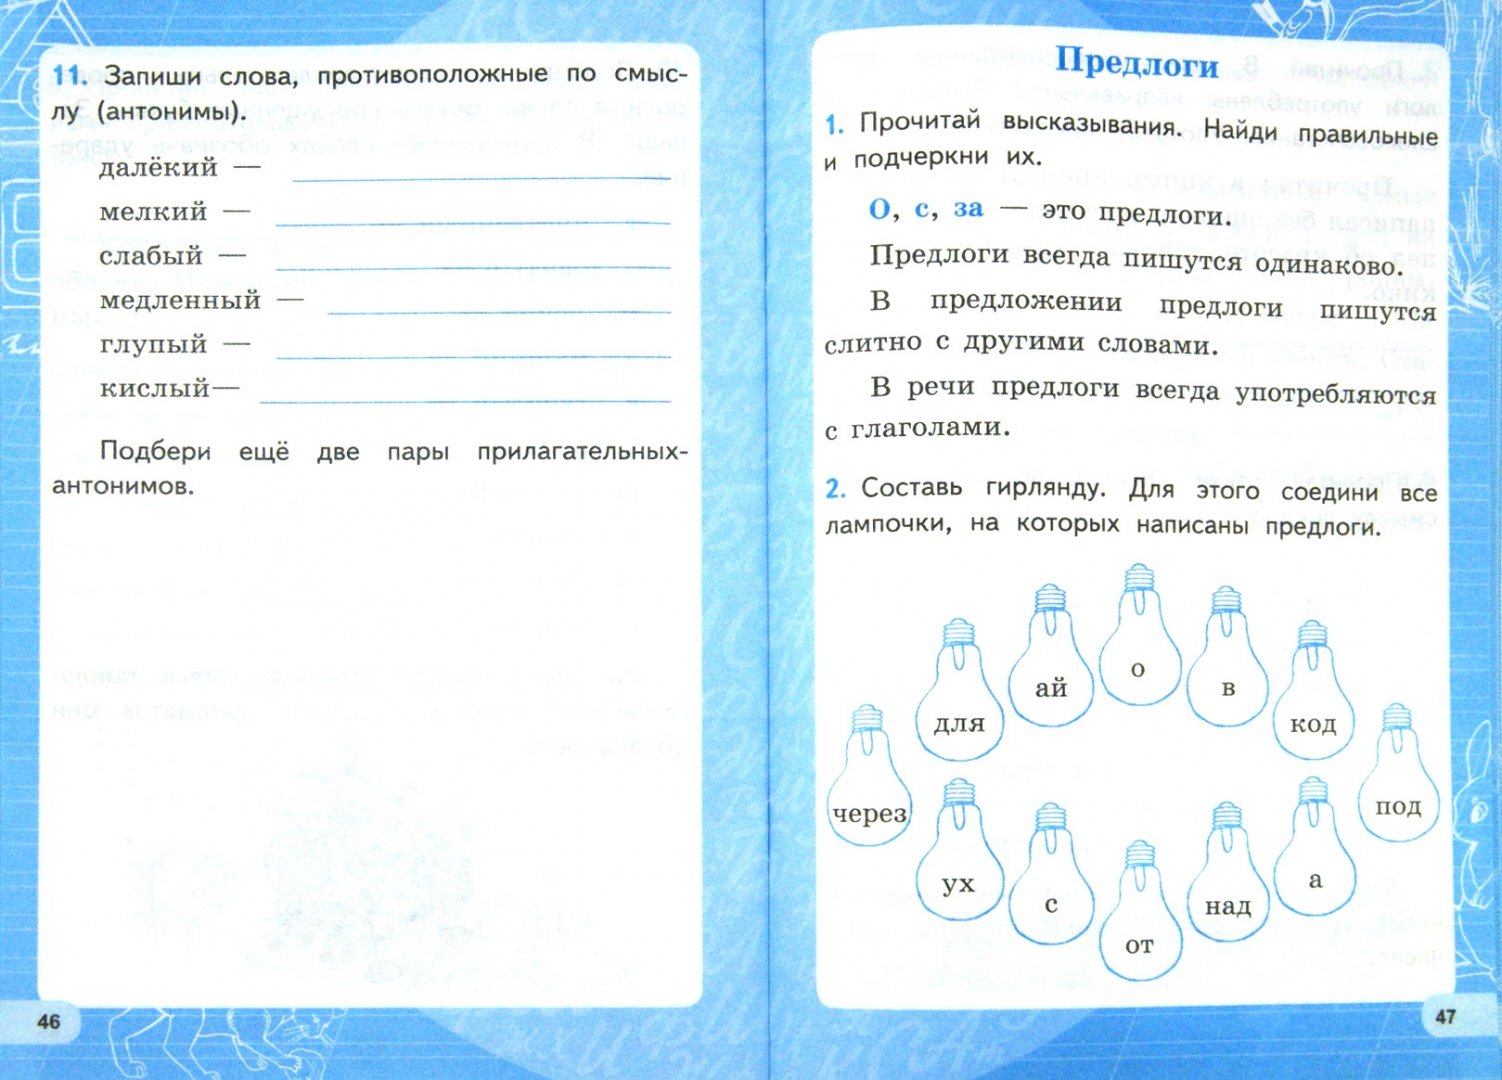 11. Запиши слова, противоположные по смыс-
лу (антонимы).
далёкий —
мелкий —
слабый —
медленный —
глупый —
кислый—
Подбери ещё две пары прилагательных-
антонимов.
46
Предлоги
1. Прочитай высказывания. Найди правильные
и подчеркни их.
О, с, за — это предлоги.
Предлоги всегда пишутся одинаково.
В предложении предлоги пишутся
слитно с другими словами.
В речи предлоги всегда употребляются
с глаголами.
2. Составь гирлянду. Для этого соедини все
лампочки, на которых написаны предлоги.
о
ай
в
для
код
через
под
ух
с
от
над
а
47